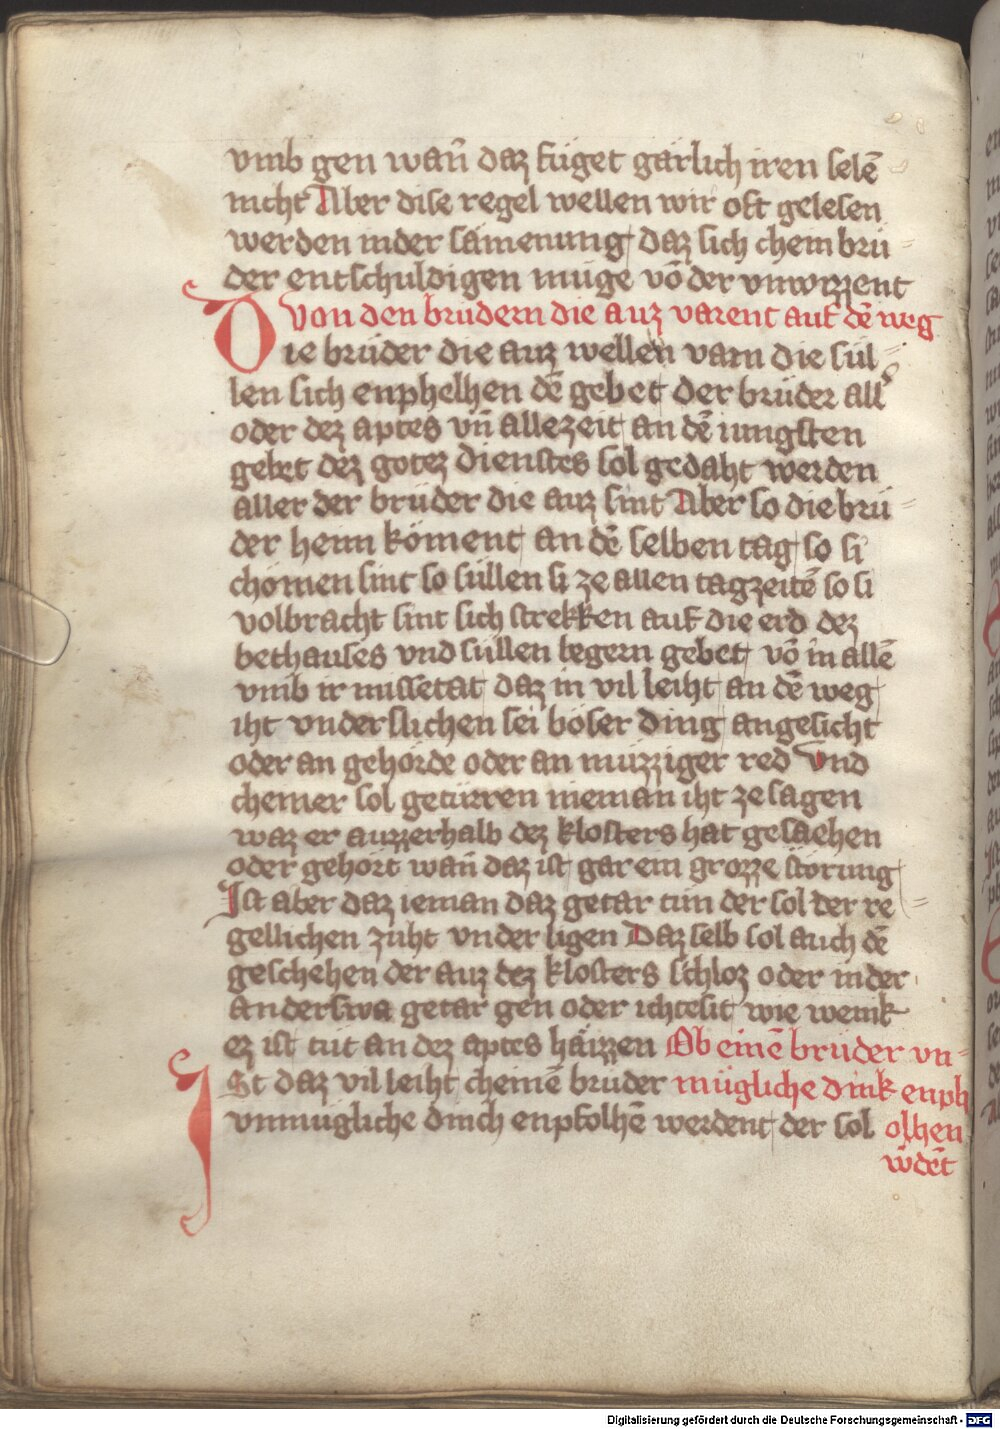 vmb gen wan̄ daz füget gärlich iren selē
nicht Aber dise regel wellen wir oft gelesen
werden in der sämenung daz sich chem brü
der entschuldigen müge vō der vnwizzent
Von den brüdern die auz varent auf dē weg
Die brüder die auz wellen varn die sül
len sich enphelhen dē gebet der brüder all
oder dez aptes vn̄ allezeit an dē iungsten
gebet dez gotez dienstes sol gedaht werden
aller der brüder die auz sint Aber so die brü
der heim köment an dē selben tag so si
chömen sint so süllen si ze allen tagzeitē so si
volbracht sint sich strekken auf die erd dez
bethauses vnd süllen begern gebet vō in allē
vmb ir missetat daz in vil leiht an dē weg
iht vnderslichen sei böser ding angesicht
oder an gehörde oder an müzziger red Vnd
chemer sol getürren nieman iht ze sagen
waz er auzzerhalb dez klosters hat gesaehen
oder gehört wan̄ daz ist gar ein grozze störung
Ist aber daz ieman daz getar tün der sol der re
gellichen zuht vnder ligen Daz selb sol auch dē
geschehen der auz dez klosters schloz oder inder
anderswa getar gen oder ichtesit wie wenik
ez ist tüt an dez aptes häizzen Ob einē brüder vn
Ist daz vil leiht cheinē brüder mügliche dink enph
vnmügliche dinch enpfolhē werdent der sol olhen
w̄dēt
Digitalisierung gefördert durch die Deutsche Forschungsgemeinschaft - DFG